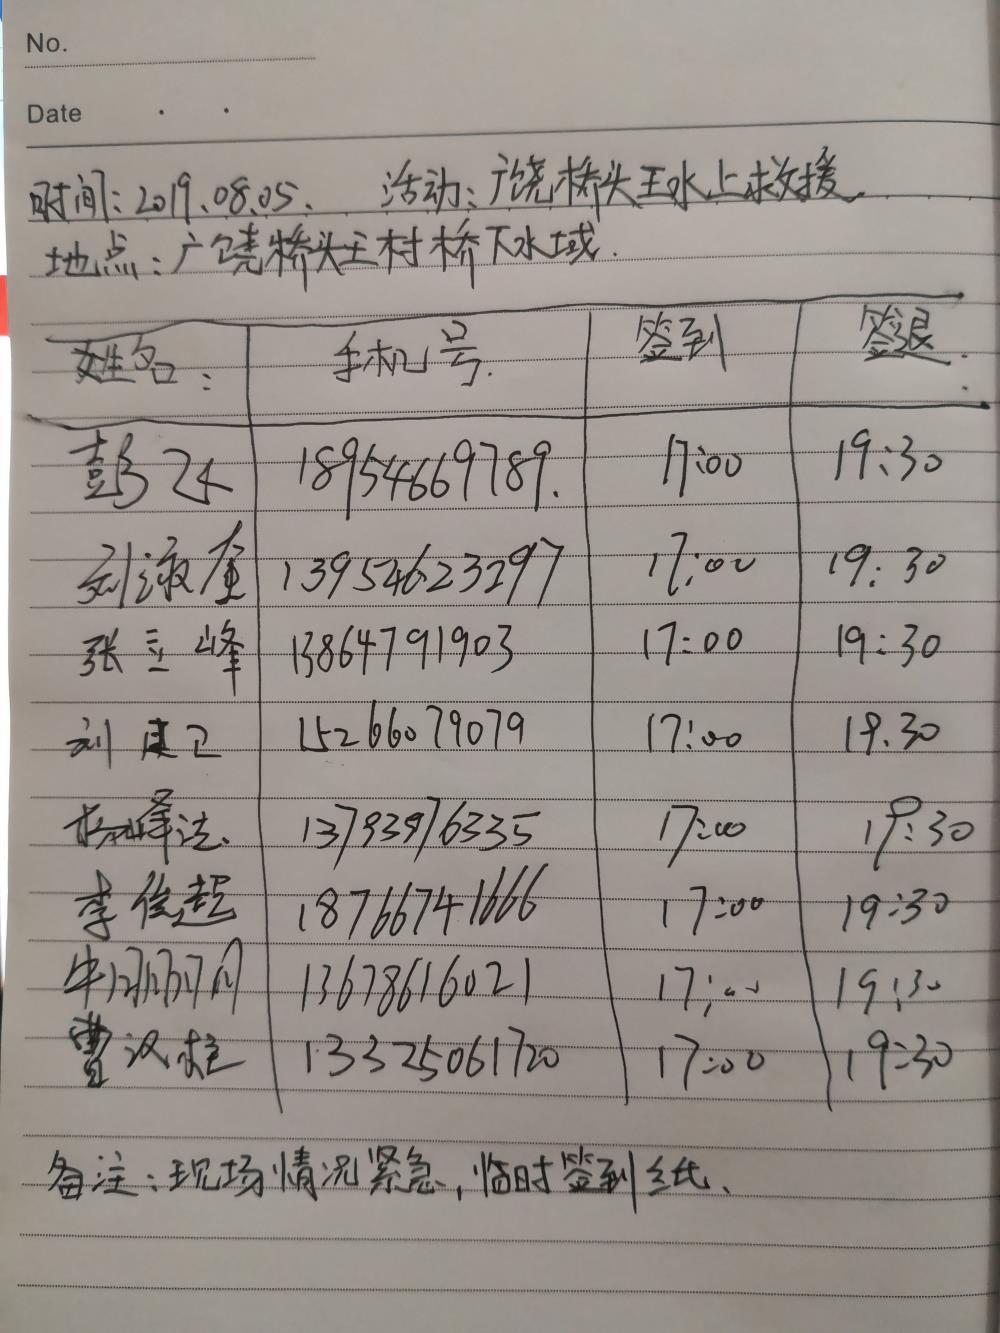 No.
Date
时间：2019.08.05. 活动：广饶桥头王水上救援.
地点：广饶桥头王村桥下水域.
姓名： 手机号. 签到 签退.
彭冰 18954669789. 17:00 19:30
刘淑奎 13954623297 17:00 19:30
张立峰 13864791903 17:00 19:30
刘建卫 15266079079 17:00 19.30
杨峰法. 13793976335 17:00 19:30
李俊超 18766741666 17:00 19:30
牛丽丽 13678616021 17:00 19:30
曹汉柱 13325061720 17:00 19:30
备注：现场情况紧急，临时签到纸、